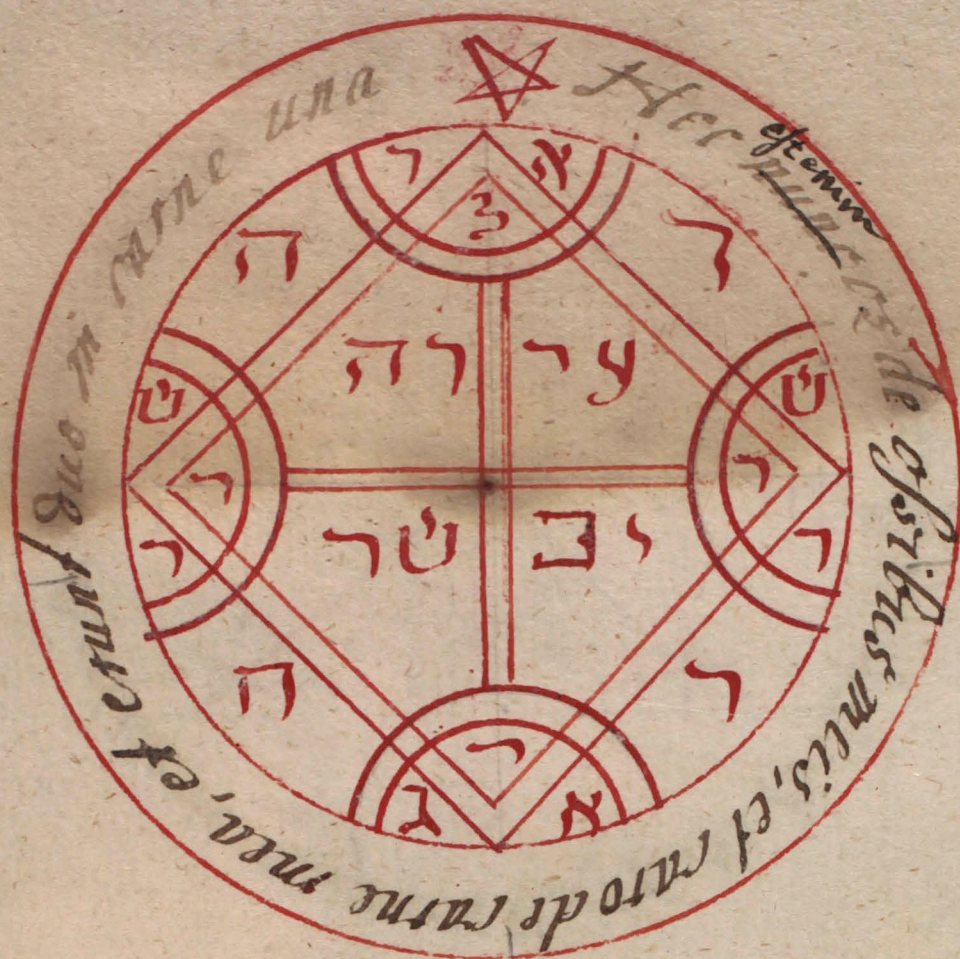 Hec nunc os de ossibus meis, et caro de carne mea, et erunt duo in carne una
est enim
ר א
ז
ה ר
רה ער
ש ש
ר ר
ר ר
שר יב
ה ר
ר
ג א